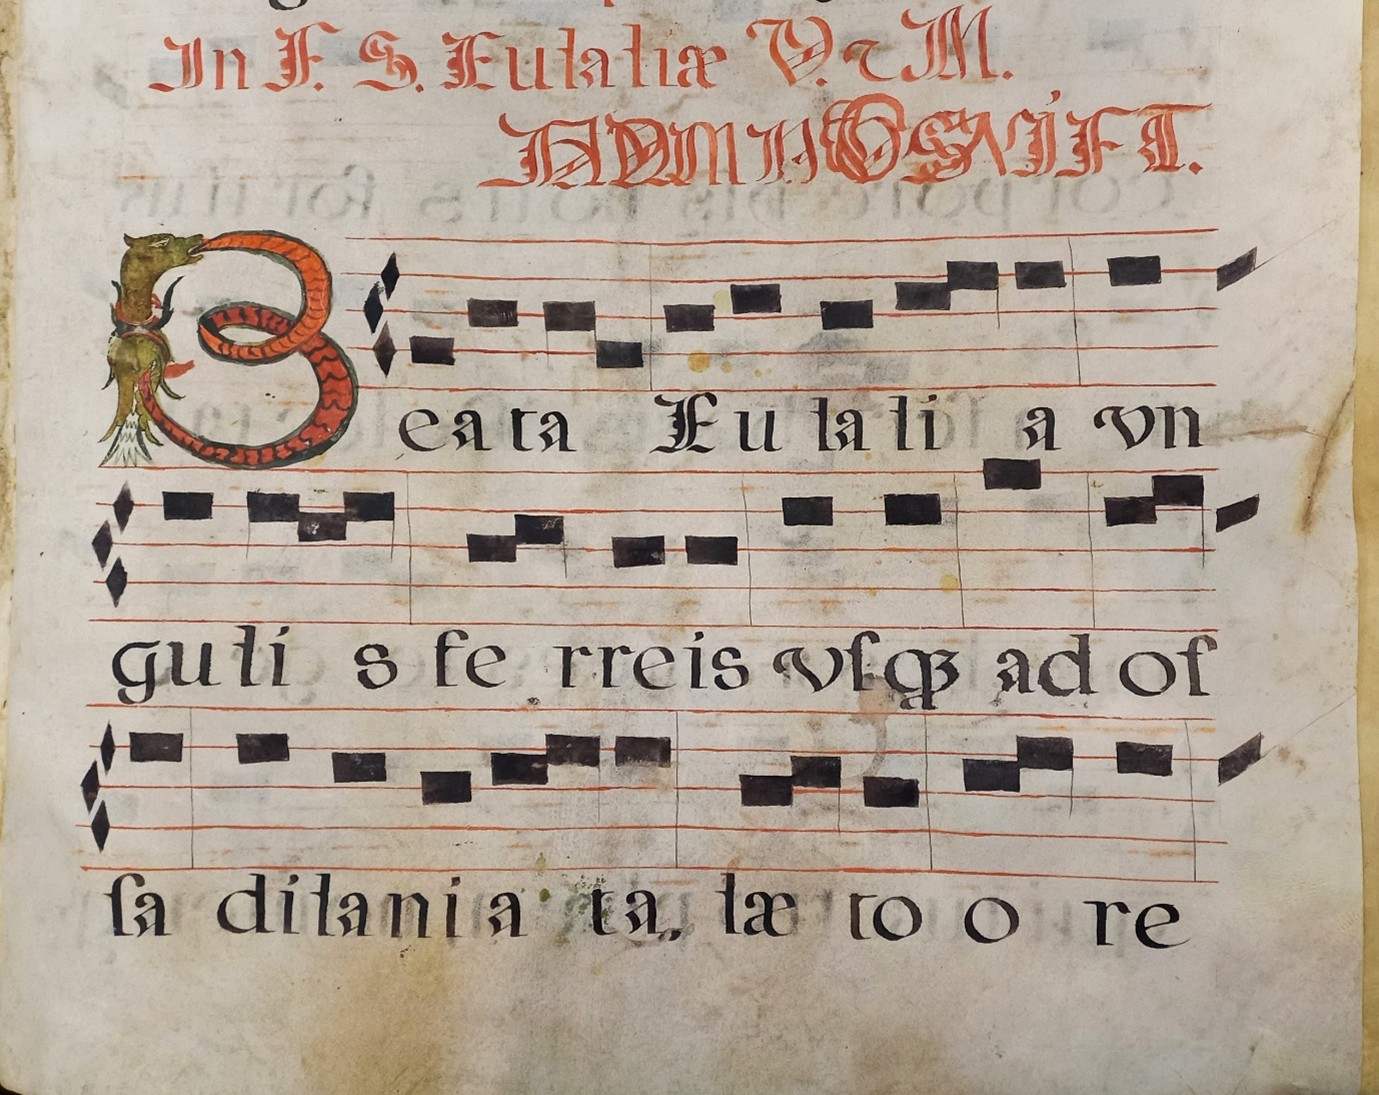 In F. S. Eulaliæ V. & M.
AD MAGNIFI
Beata Eulalia vn
gulis ferreis vſqȝ ad oſ
ſa dilania ta, læ to o re